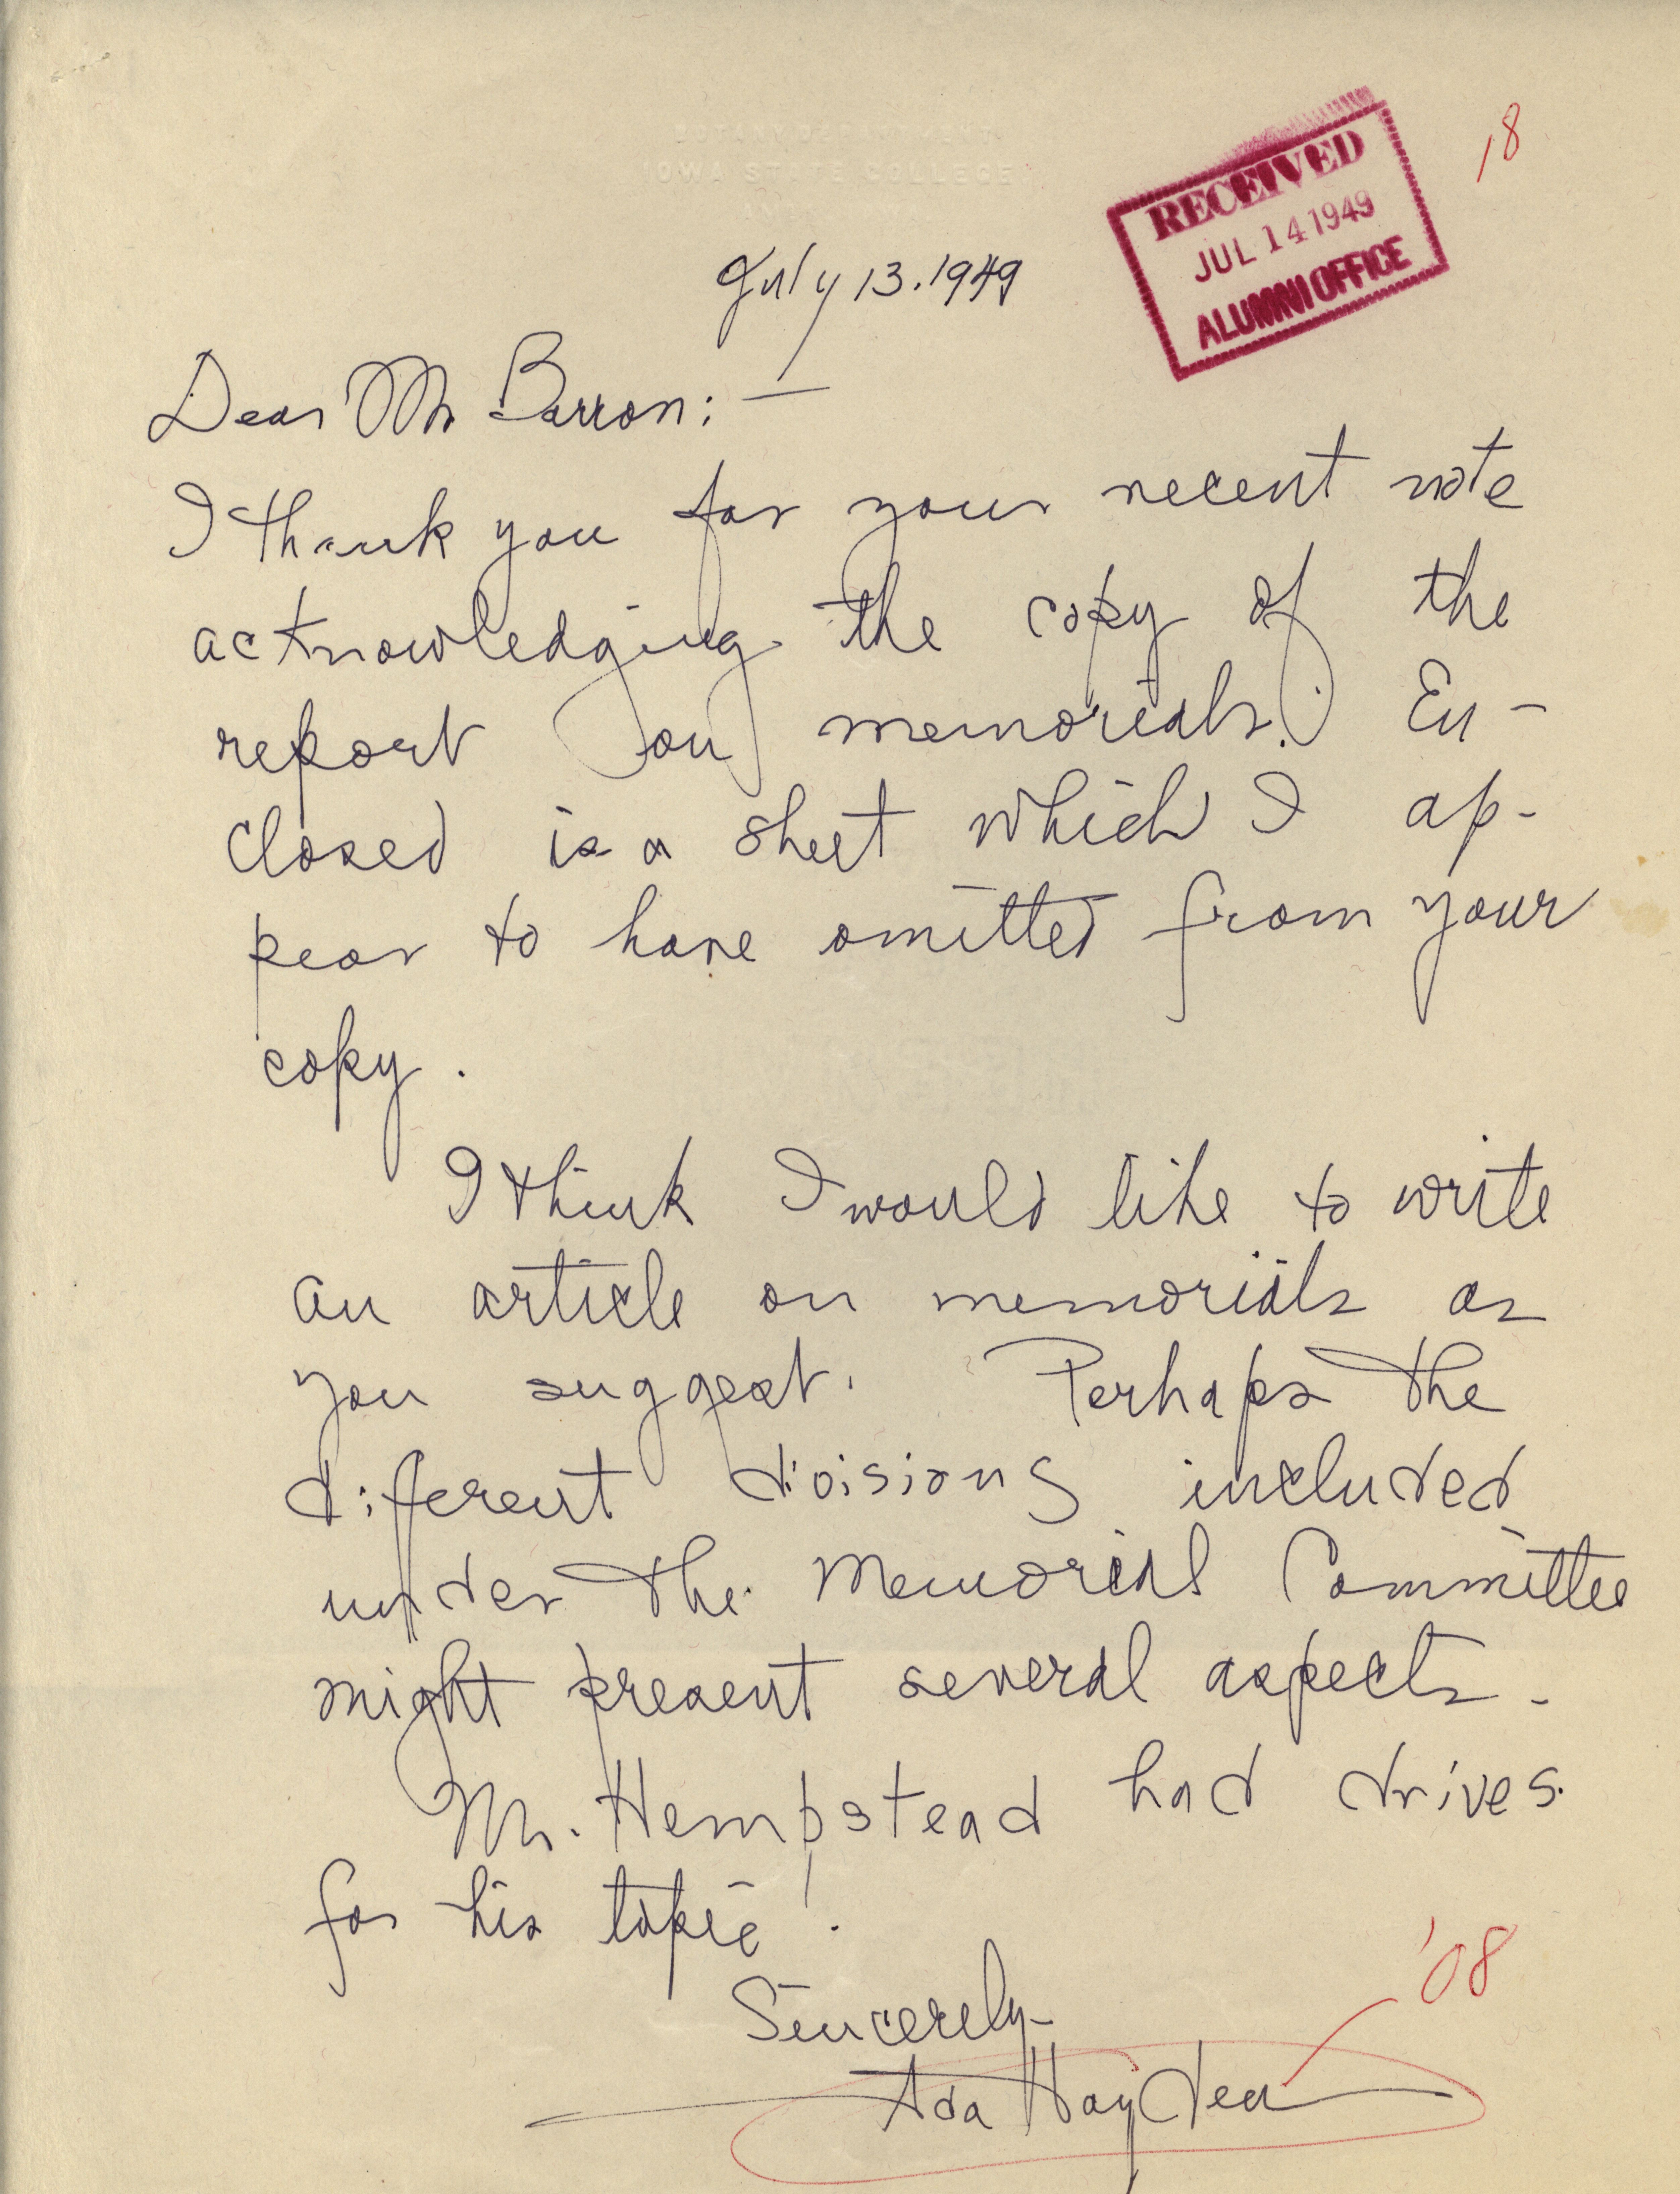 BOTANY DEPARTMENT
IOWA STATE COLLEGE
RECEIVED
JUL 14 1949
ALUMNI OFFICE
18
July 13. 1949
Dear Mr Barron: —
I thank you for your recent note
acknowledging the copy of the
report on memorials. En-
closed is a sheet which I ap-
pear to have omitted from your
copy.
I think I would like to write
an article on memorials as
you suggest. Perhaps the
different divisions included
under the Memorial Committee
might present several aspects-
Mr. Hempstead had drives
for his topic!
Sincerely-
Ada Hayden
'08